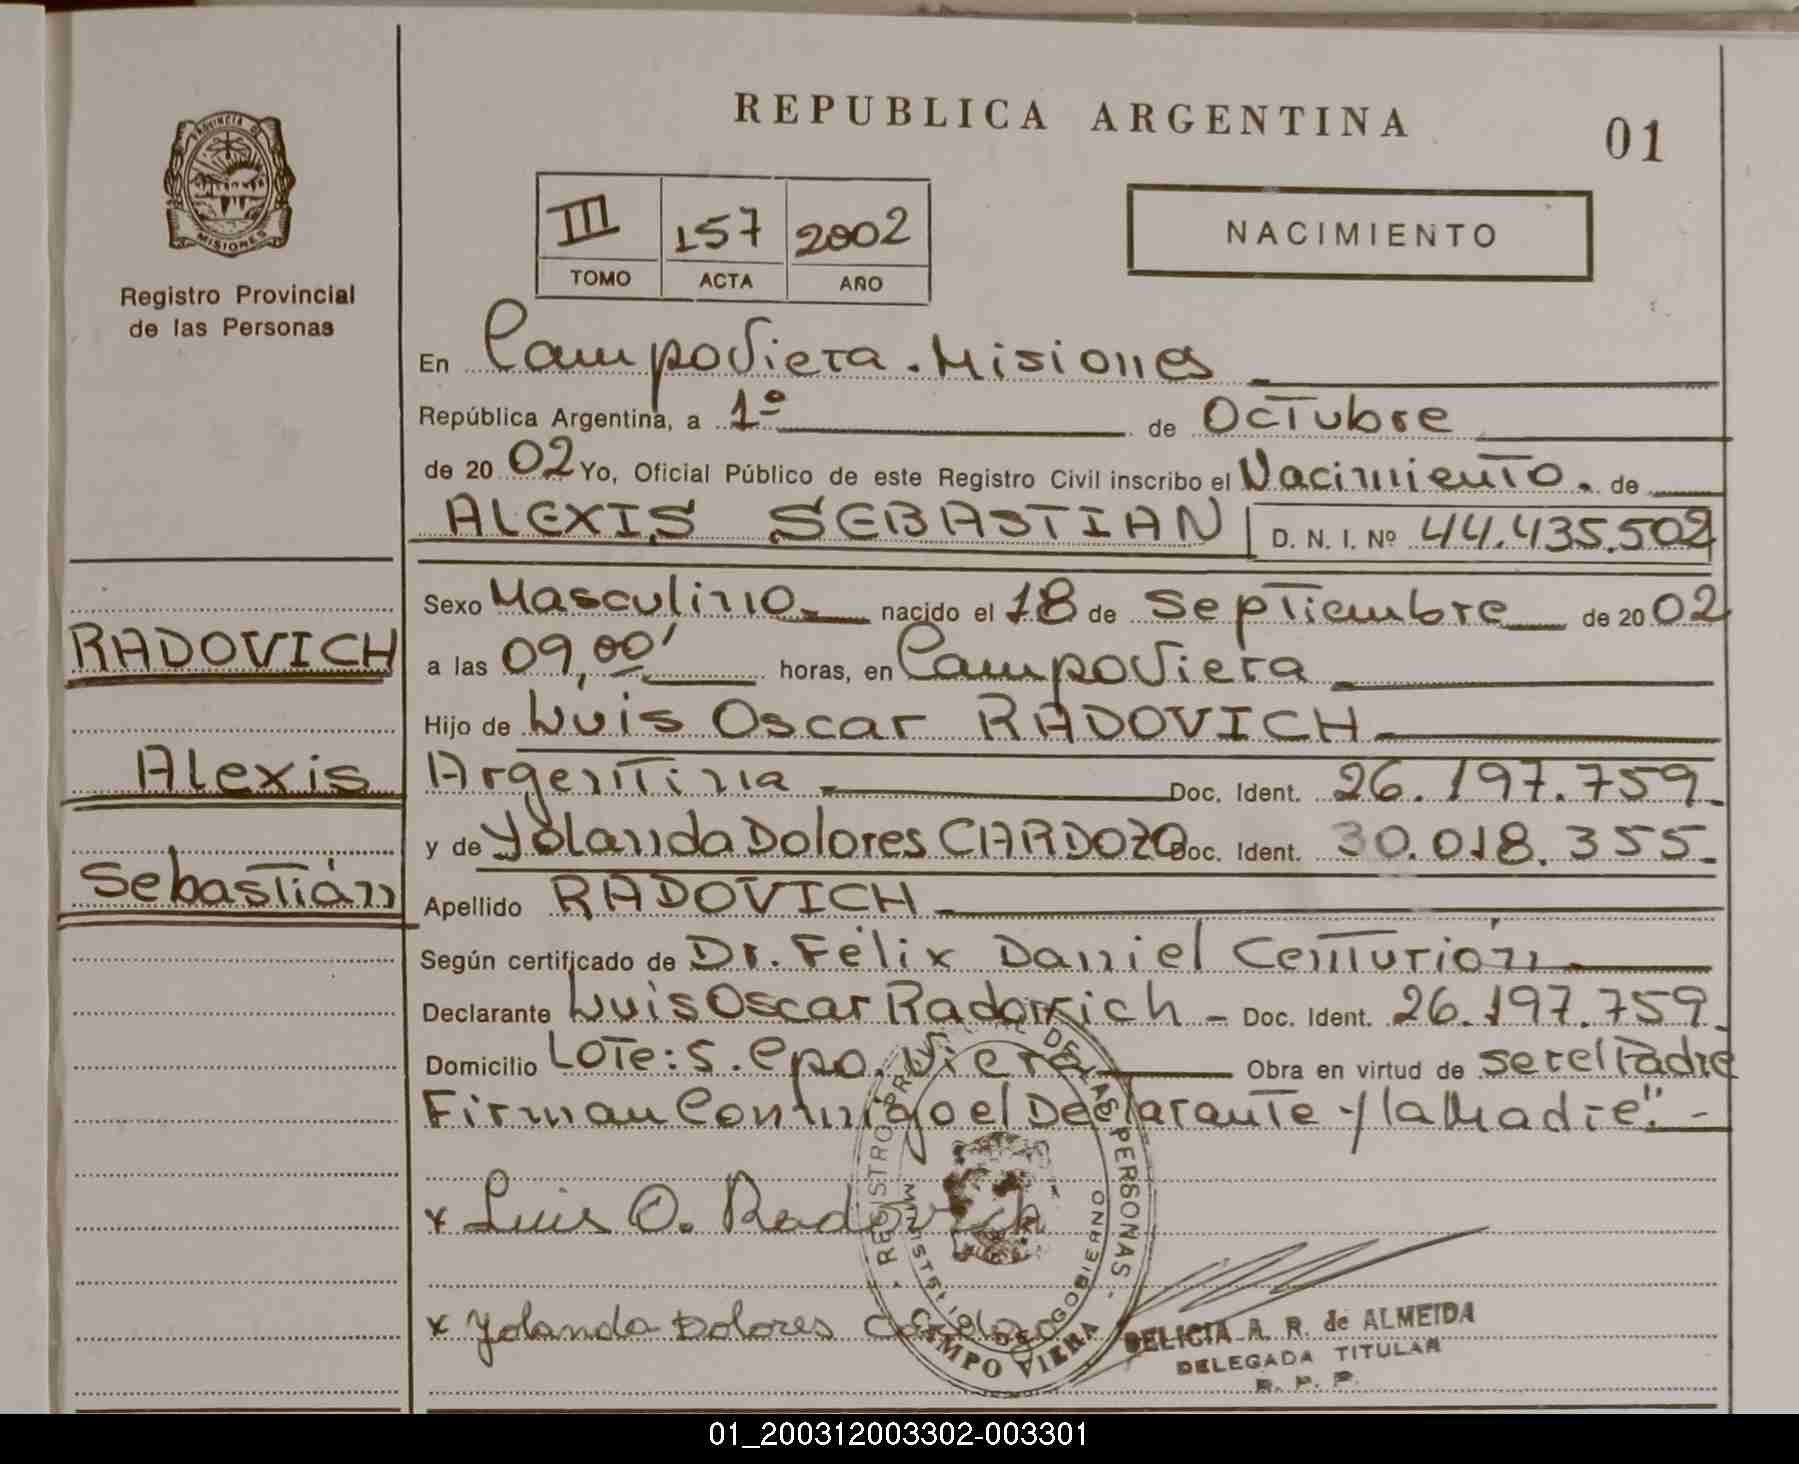 REPUBLICA ARGENTINA
01
PROVINCIA DE
MISIONES
Registro Provincial
de las Personas
III 157 2002
TOMO ACTA AÑO
NACIMIENTO
En Campo Viera. Misiones
República Argentina, a 1º de Octubre
de 2002 Yo, Oficial Público de este Registro Civil inscribo el Nacimiento. de
ALEXIS SEBASTIAN D. N. I. Nº 44.435.502
Sexo Masculino nacido el 18 de Septiembre de 2002
a las 09,00' horas, en Campo Viera
Hijo de Luis Oscar RADOVICH
Argentina Doc. Ident. 26.197.759.
y de Yolanda Dolores CARDOZO Doc. Ident. 30.018.355.
Apellido RADOVICH
Según certificado de Dr. Félix Daniel Centurión
Declarante Luis Oscar Radovich - Doc. Ident. 26.197.759.
Domicilio Lote: 5. Cpo. Viera Obra en virtud de ser el Padre
Firman Conmigo el Declarante y la Madre". -
RADOVICH
Alexis
Sebastián
x Luis O. Radovich
x Yolanda Dolores Cardozo
REGISTRO PROV. DE LAS PERSONAS
MINISTERIO DE GOBIERNO
CAMPO VIERA
DELICIA A. R. de ALMEIDA
DELEGADA TITULAR
R. P. P.
01_200312003302-003301